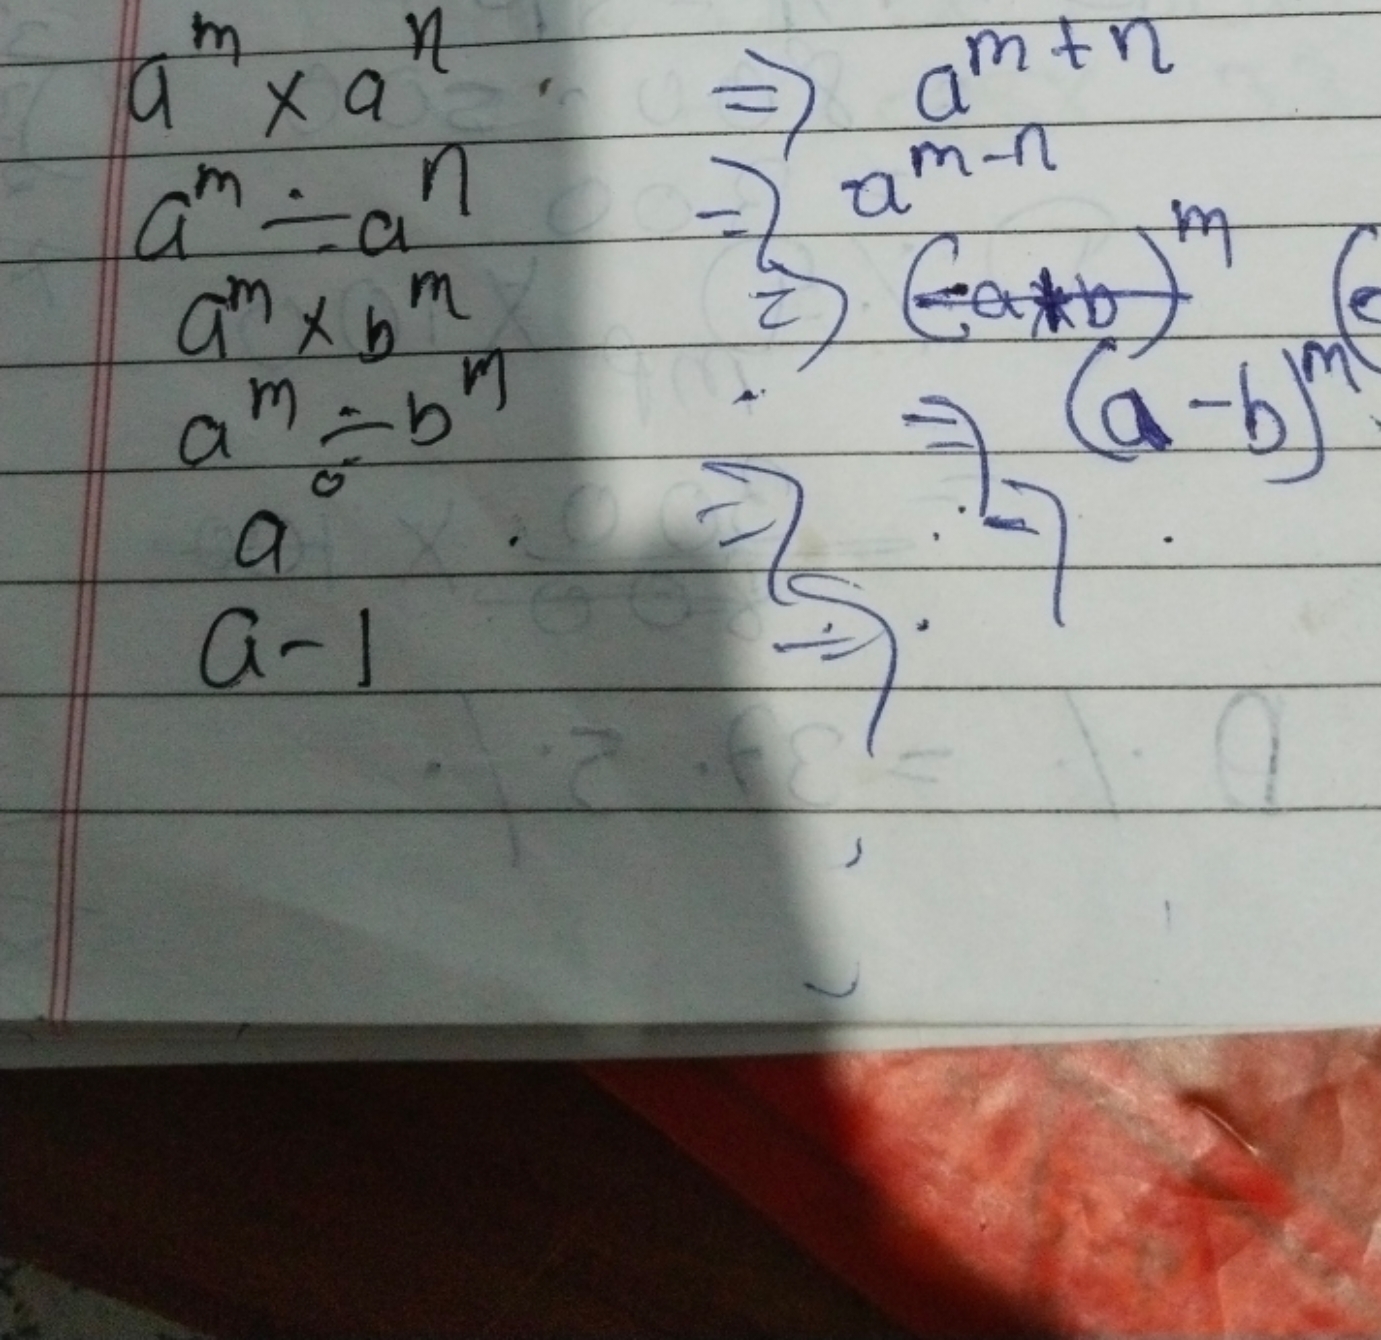 a^m × a^n ⇒ a^{m+n}
a^m ÷ a^n ⇒ a^{m-n}
a^m × b^m ⇒ (a×b)^m (
a^m ÷ b^m ⇒ (a-b)^m
a^0 ⇒
a-1 ⇒